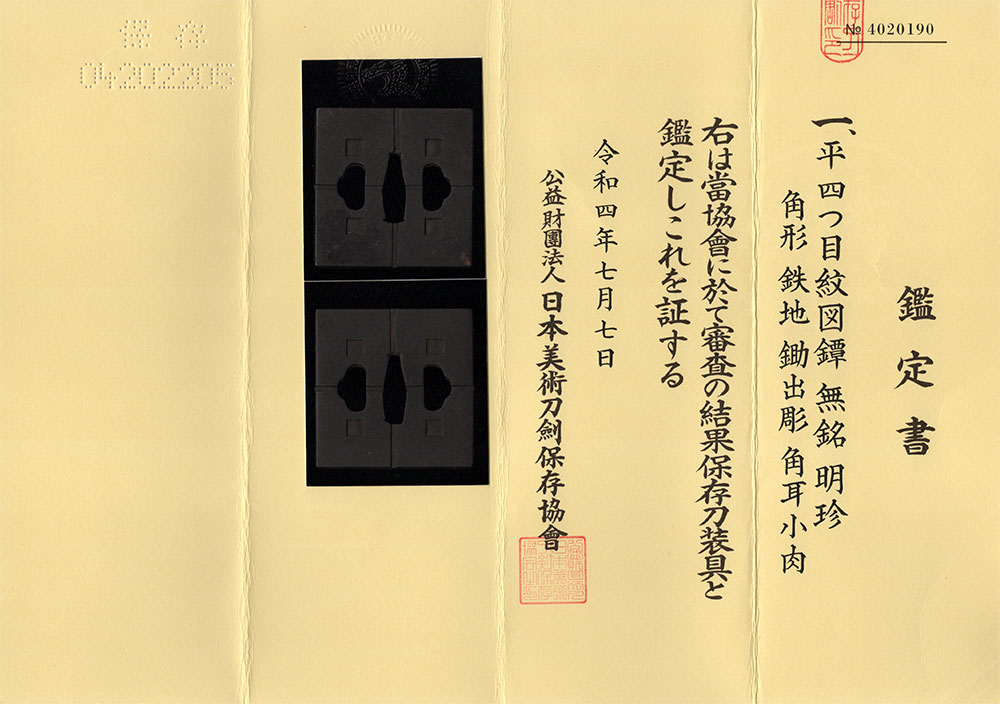 № 4020190
鑑定書
一、平四つ目紋図鐔 無銘 明珍
角形 鉄地 鋤出彫 角耳小肉
右は當協會に於て審査の結果保存刀装具と
鑑定しこれを証する
令和四年七月七日
公益財團法人 日本美術刀劍保存協會
保存
04202205